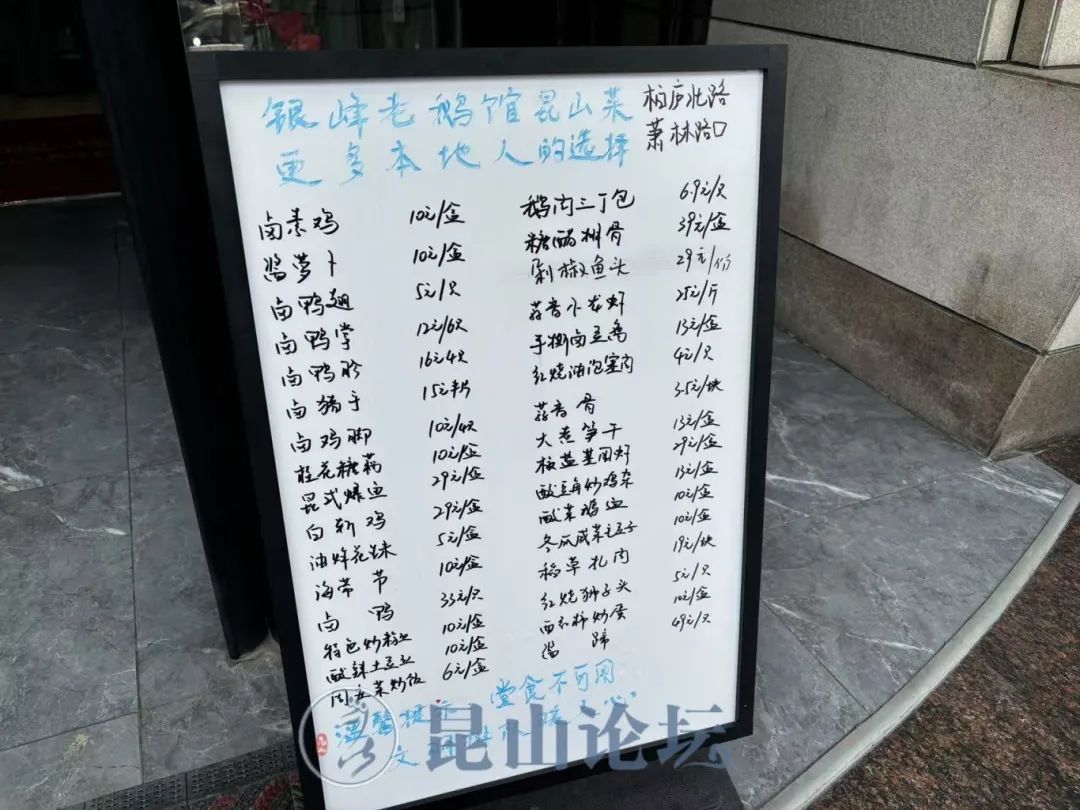 银峰老鹅馆昆山菜
更多本地人的选择
柏庐北路
萧林路口
卤素鸡 10元/盒
酱萝卜 10元/盒
卤鸭翅 5元/只
卤鸭掌 12元/6只
卤鸭胗 16元4只
卤猪手 15元半片
卤鸡脚 10元/4只
桂花糖藕 10元/盒
昆式爆鱼 29元/盒
白斩鸡 29元/盒
油炸花生米 5元/盒
海带节 10元/盒
卤鸭 33元/只
特色炒粉丝 10元/盒
酸辣土豆丝 10元/盒
菜炒饭 6元/盒
鹅肉三丁包 6.9元/只
糖醋排骨 39元/盒
剁椒鱼头 29元/份
蒜香小龙虾 25元/斤
手撕卤豆 13元/盒
红烧油泡塞肉 4元/只
蒜香骨 3.5元/块
大煮笋干 13元/盒
椒盐基围虾 29元/盒
酸豆角炒鸡杂 13元/盒
酸菜 10元/盒
冬瓜咸菜毛豆子 10元/盒
稻草扎肉 19元/块
红烧狮子头 5元/只
西红柿炒蛋 10元/盒
蹄 49元/只
温馨提示 堂食不可用
昆山论坛